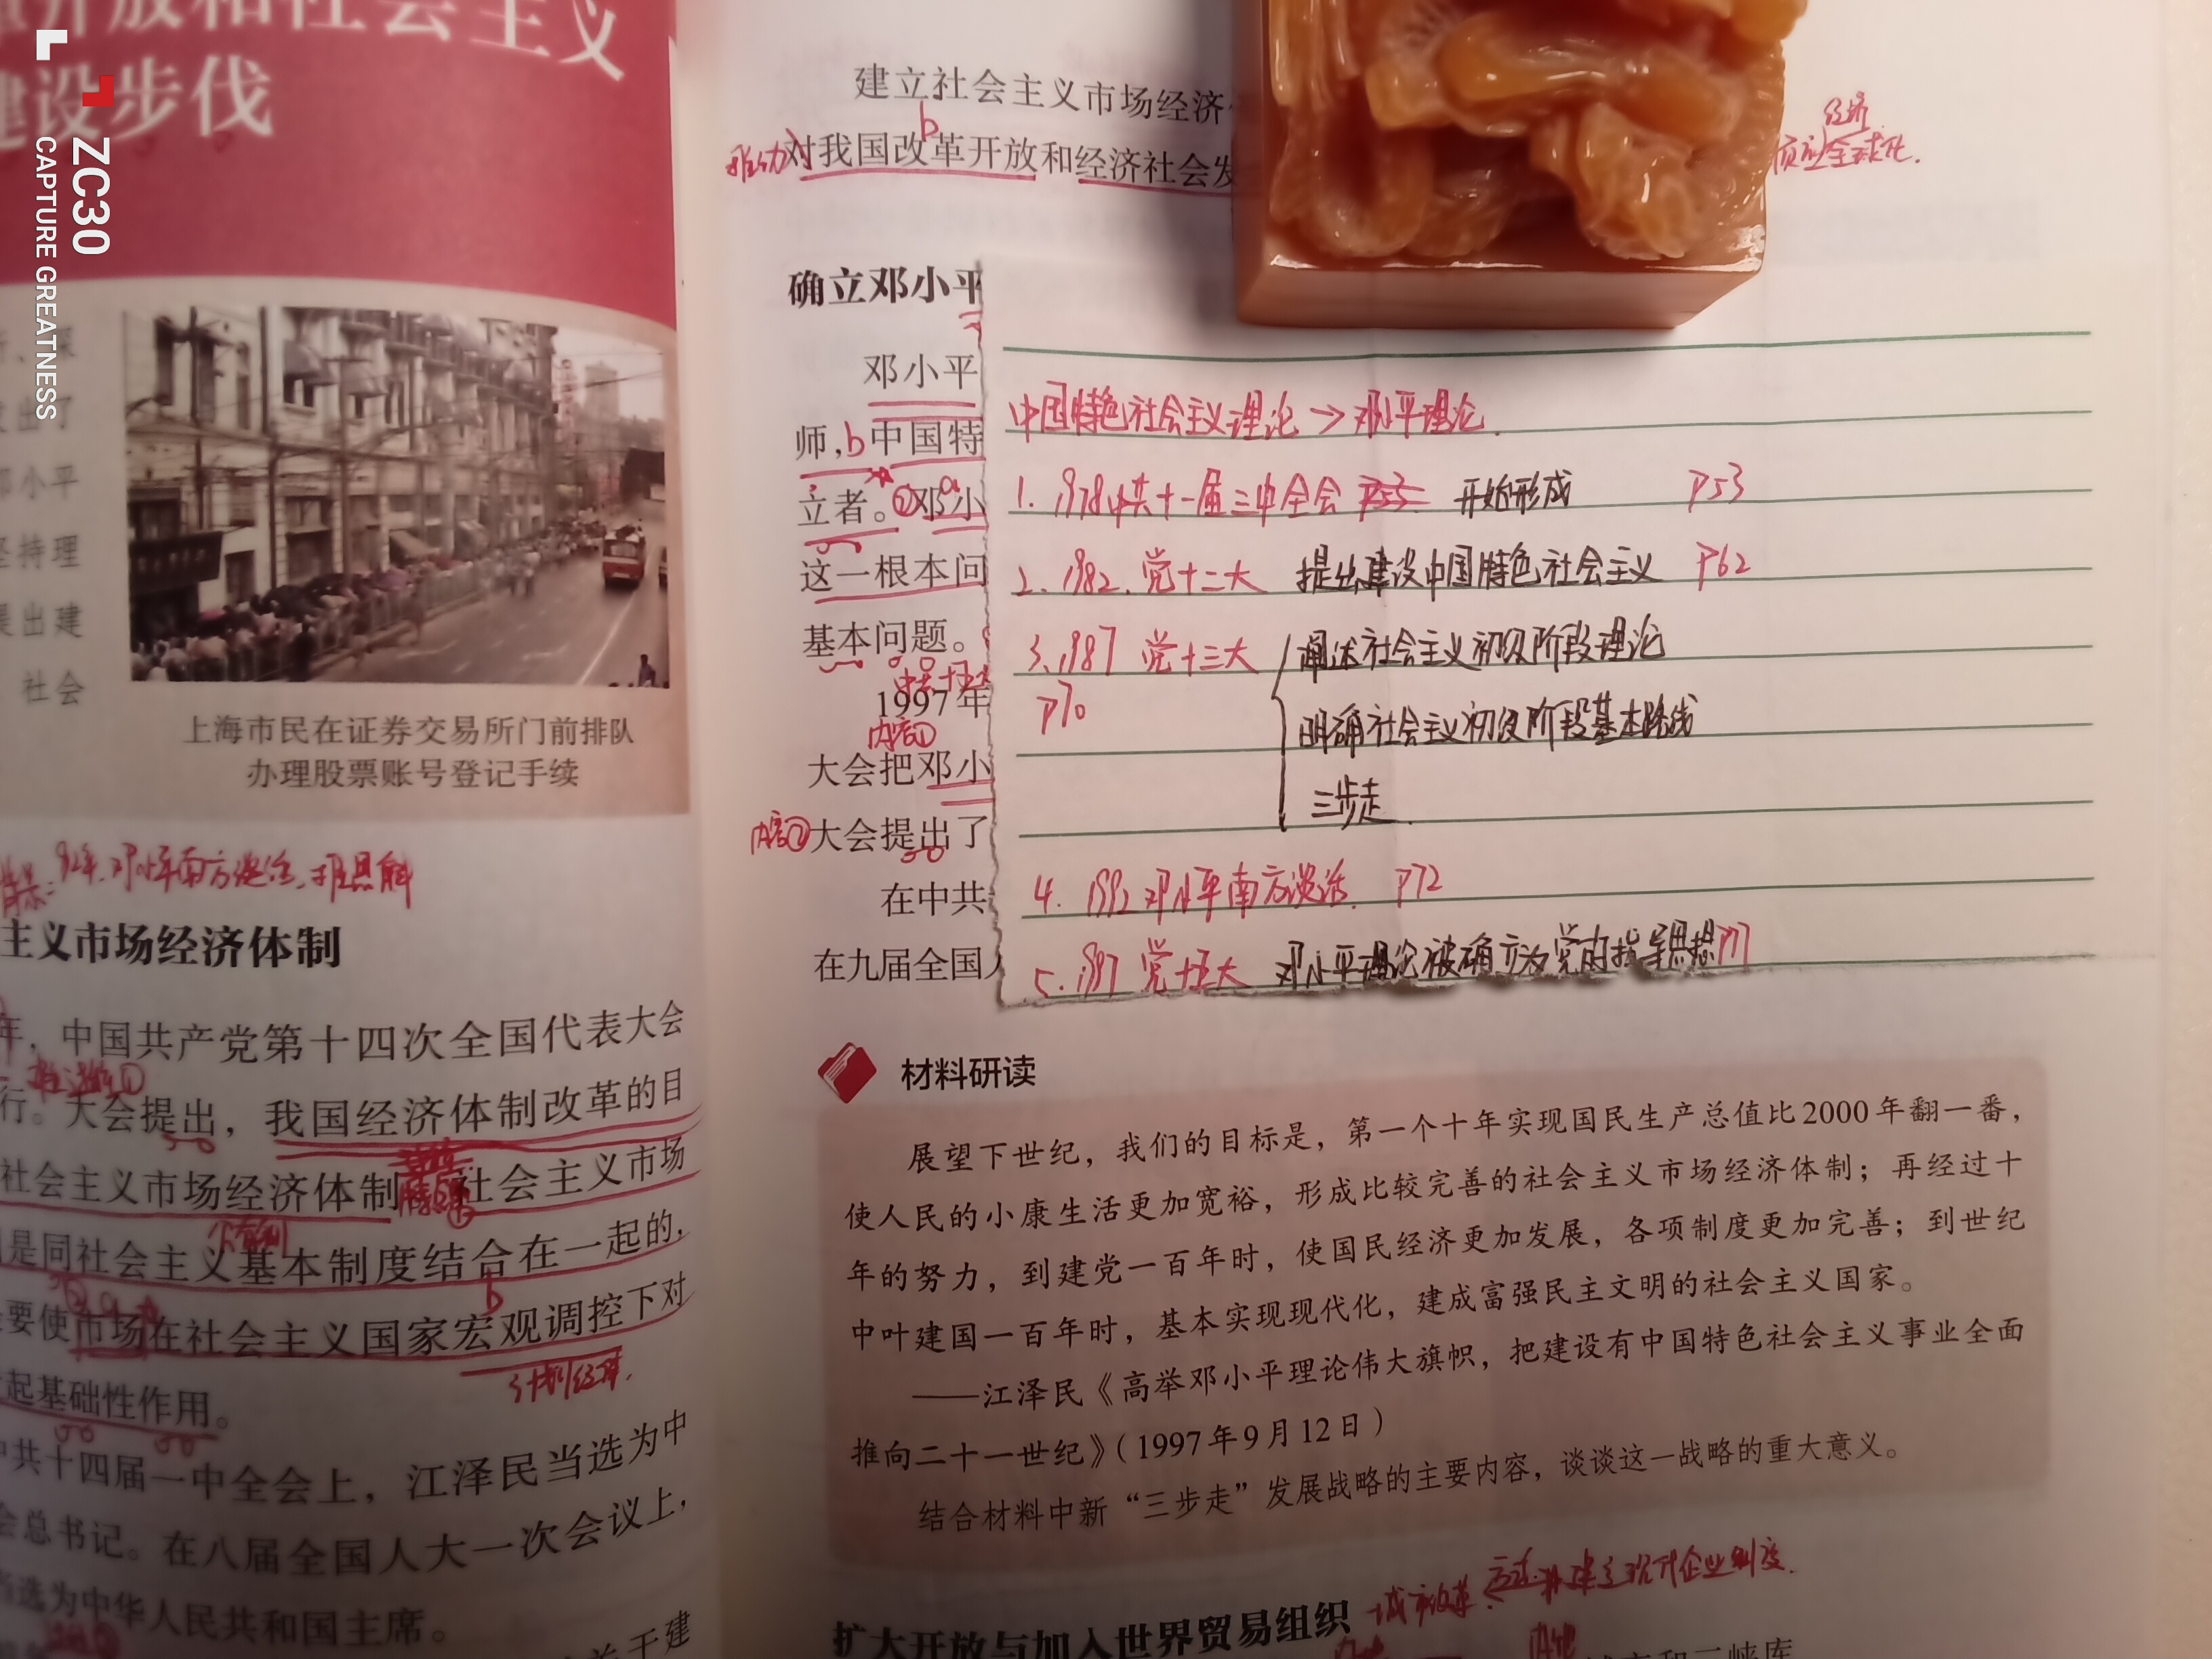 ZC30
CAPTURE GREATNESS
开放和社会主义
建设步伐
出了
小平
坚持理
提出建
社会
上海市民在证券交易所门前排队
办理股票账号登记手续
92年,邓小平南方谈话,
主义市场经济体制
年,中国共产党第十四次全国代表大会
行。大会提出,我国经济体制改革的目
社会主义市场经济体制 社会主义市场
是同社会主义基本制度结合在一起的,
要使市场在社会主义国家宏观调控下对
计划经济.
起基础性作用。
中共十四届一中全会上,江泽民当选为中
总书记。在八届全国人大一次会议上,
当选为中华人民共和国主席。
关于建
建立社会主义市场经济
b
推动 对我国改革开放和经济社会发
经济
全球化.
确立邓小平
邓小平
师,b中国特
立者。②邓小
这一根本问
基本问题。
中共十五大
1997年
内容①
大会把邓小
内容② 大会提出了
在中共
在九届全国人
中国特色社会主义理论→邓小平理论.
1. 1978中共十一届三中全会 P53 开始形成 P53
2. 1982. 党十二大 提出建设中国特色社会主义 P62
3. 1987 党十三大 阐述社会主义初级阶段理论
P70 明确社会主义初级阶段基本路线
三步走.
4. 1992邓小平南方谈话. P72
5. 1997 党十五大 邓小平理论被确立为党的指导思想
材料研读
展望下世纪,我们的目标是,第一个十年实现国民生产总值比2000年翻一番,
使人民的小康生活更加宽裕,形成比较完善的社会主义市场经济体制;再经过十
年的努力,到建党一百年时,使国民经济更加发展,各项制度更加完善;到世纪
中叶建国一百年时,基本实现现代化,建成富强民主文明的社会主义国家。
——江泽民《高举邓小平理论伟大旗帜,把建设有中国特色社会主义事业全面
推向二十一世纪》(1997年9月12日)
结合材料中新“三步走”发展战略的主要内容,谈谈这一战略的重大意义。
城市改革: 建立现代企业制度.
扩大开放与加入世界贸易组织